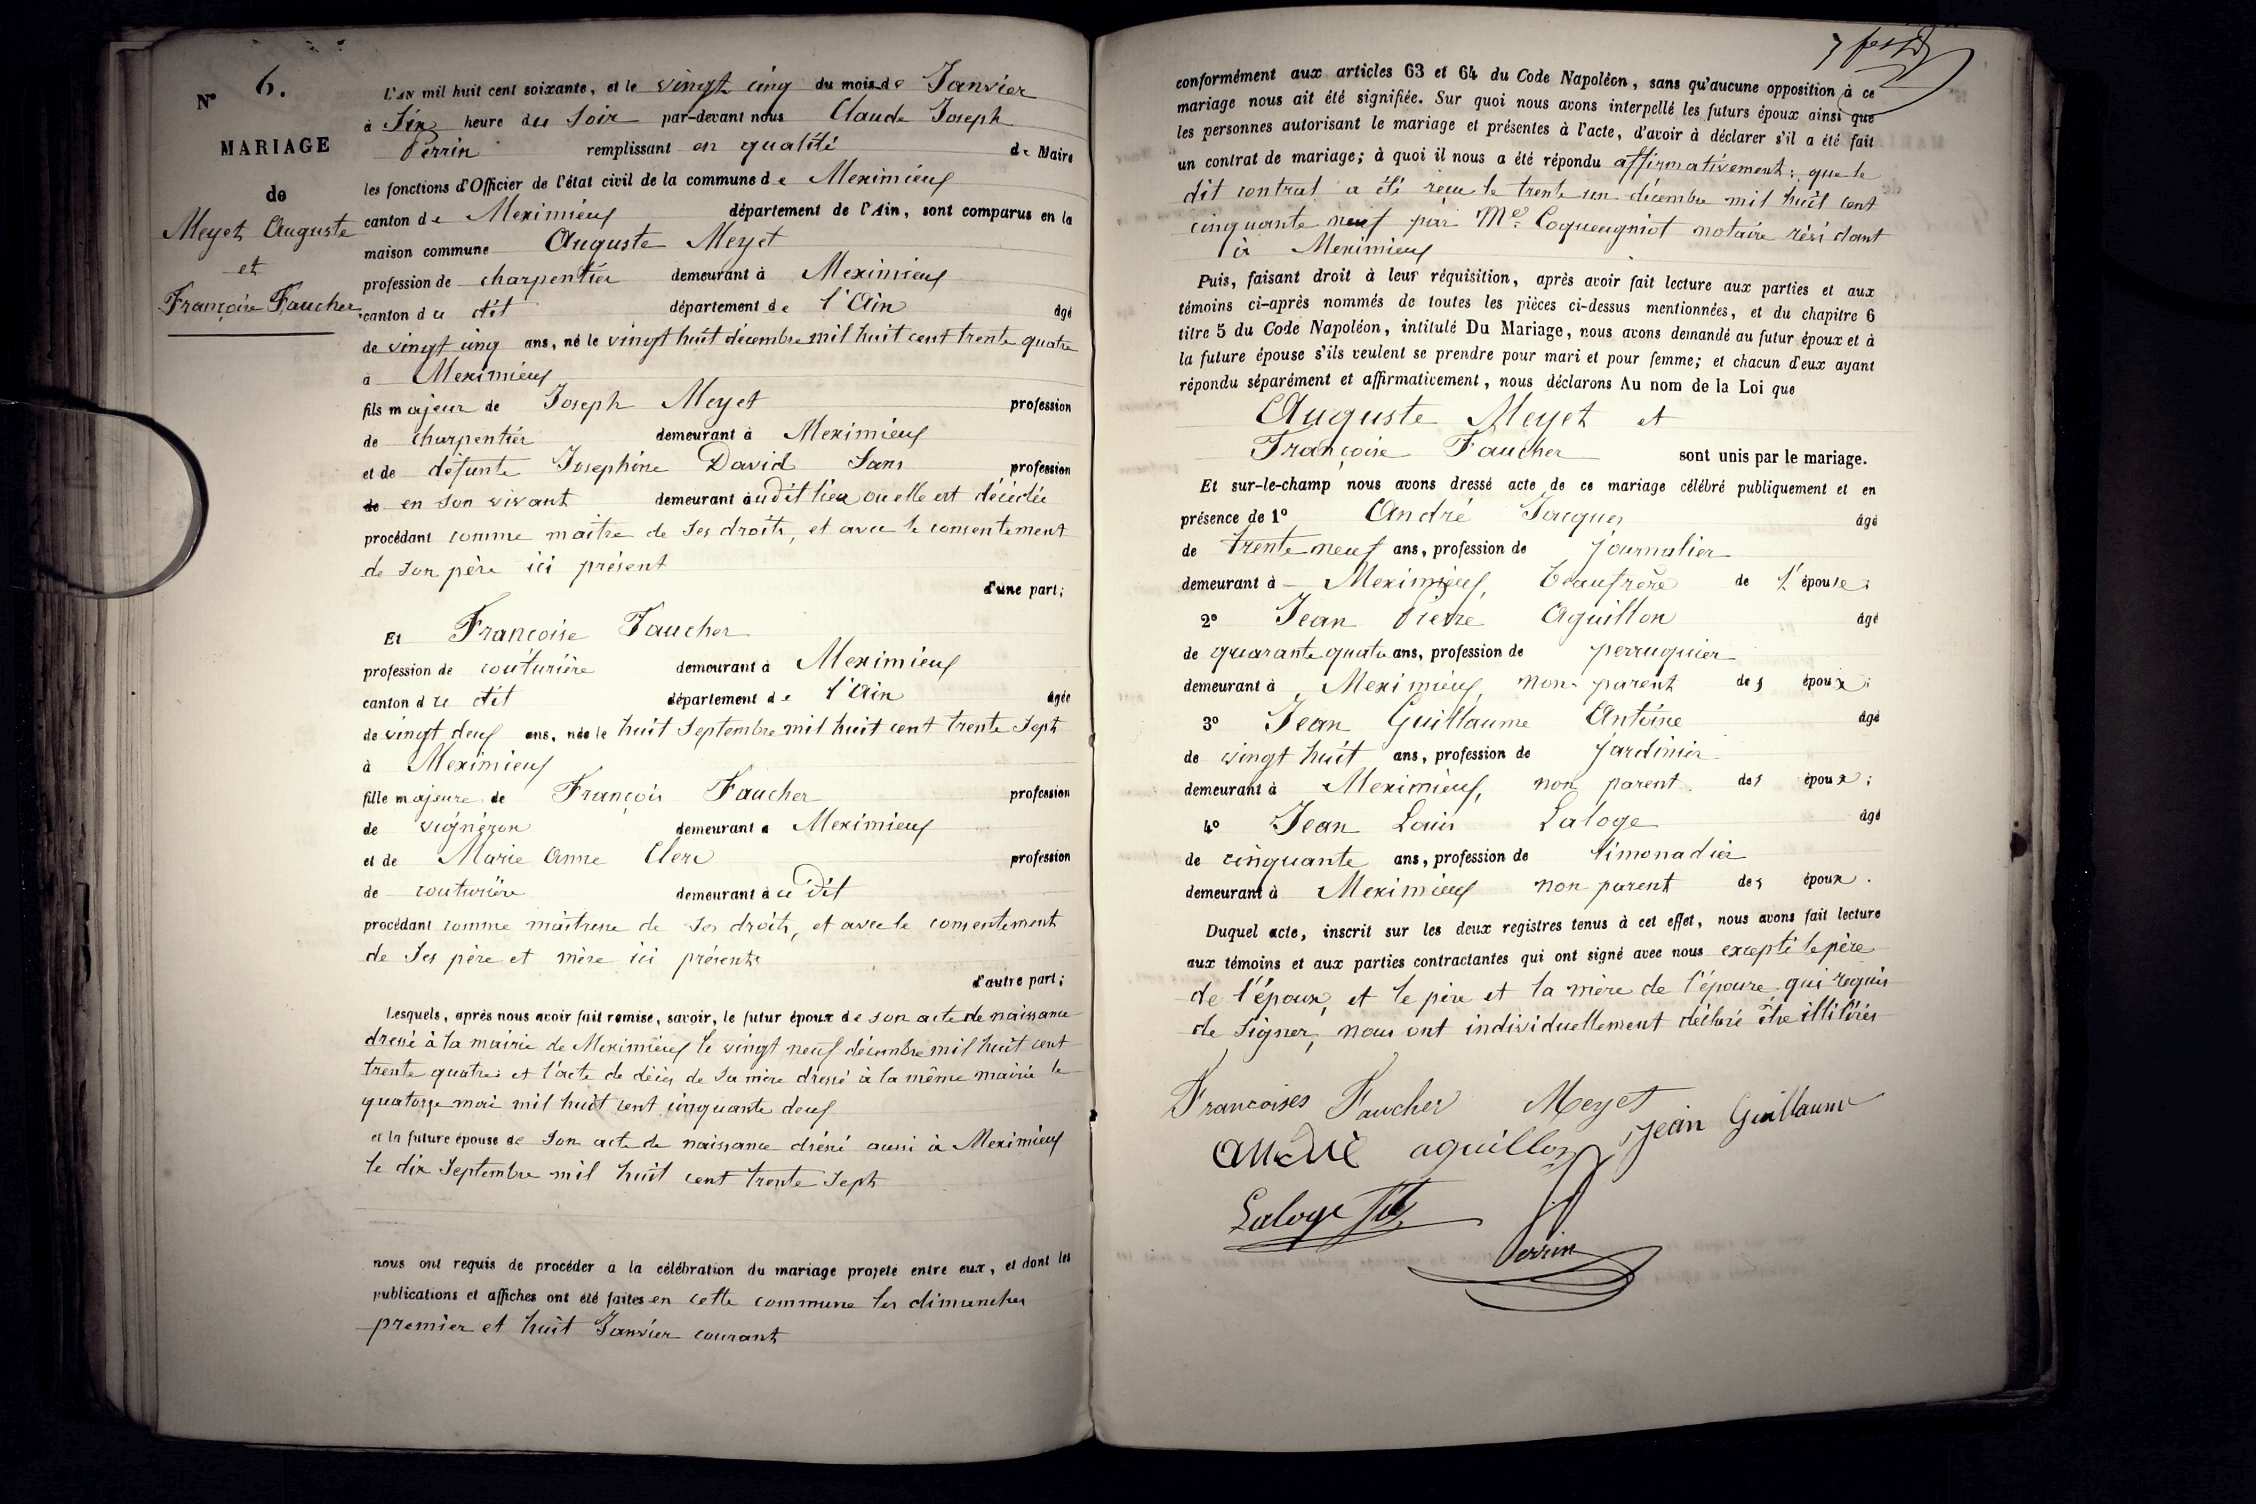 N° 6.
MARIAGE
de
Meyet Auguste
et
Françoise Faucher
L'AN mil huit cent soixante, et le vingt cinq du mois de Janvier
à Six heure du Soir par-devant nous Claude Joseph
Perrin remplissant en qualité de Maire
les fonctions d'Officier de l'état civil de la commune de Meximieux
canton de Meximieux département de l'Ain, sont comparus en la
maison commune Auguste Meyet
profession de charpentier demeurant à Meximieux
canton du dit département de l'Ain âgé
de vingt cinq ans, né le vingt huit décembre mil huit cent trente quatre
à Meximieux
fils majeur de Joseph Meyet profession
de charpentier demeurant à Meximieux
et de défunte Josephine David Sans profession
de en son vivant demeurant audit lieu où elle est décédée
procédant comme maître de ses droits, et avec le consentement
de son père ici présent
d'une part;
Et Françoise Faucher
profession de couturière demeurant à Meximieux
canton du dit département de l'Ain âgée
de vingt deux ans, née le huit Septembre mil huit cent trente Sept
à Meximieux
fille majeure de François Faucher profession
de vigneron demeurant à Meximieux
et de Marie Anne Clerc profession
de couturière demeurant à ce dit
procédant comme maîtresse de ses droits, et avec le consentement
de Ses père et mère ici présents
d'autre part;
Lesquels, après nous avoir fait remise, savoir, le futur époux de son acte de naissance
dressé à la mairie de Meximieux le vingt neuf décembre mil huit cent
trente quatre; et l'acte de décès de Sa mère dressé à la même mairie le
quatorze mai mil huit cent cinquante deux
et la future épouse de Son acte de naissance dressé aussi à Meximieux
le dix Septembre mil huit cent trente Sept
nous ont requis de procéder à la célébration du mariage projeté entre eux, et dont les
publications et affiches ont été faites en cette commune les dimanches
premier et huit Janvier courant
conformément aux articles 63 et 64 du Code Napoléon, sans qu'aucune opposition à ce
mariage nous ait été signifiée. Sur quoi nous avons interpellé les futurs époux ainsi que
les personnes autorisant le mariage et présentes à l'acte, d'avoir à déclarer s'il a été fait
un contrat de mariage; à quoi il nous a été répondu affirmativement; que le
dit contrat a été reçu le trente un décembre mil huit cent
cinquante neuf par Me. Coqueugniot notaire résidant
à Meximieux
Puis, faisant droit à leur réquisition, après avoir fait lecture aux parties et aux
témoins ci-après nommés de toutes les pièces ci-dessus mentionnées, et du chapitre 6
titre 5 du Code Napoléon, intitulé Du Mariage, nous avons demandé au futur époux et à
la future épouse s'ils veulent se prendre pour mari et pour femme; et chacun d'eux ayant
répondu séparément et affirmativement, nous déclarons Au nom de la Loi que
Auguste Meyet et
Françoise Faucher sont unis par le mariage.
Et sur-le-champ nous avons dressé acte de ce mariage célébré publiquement et en
présence de 1° André Jacques âgé
de trente neuf ans, profession de journalier
demeurant à Meximieux, beaufrère de l'épouse;
2° Jean Pierre Aguillon âgé
de quarante quatre ans, profession de perruquier
demeurant à Meximieux, non parent des époux;
3° Jean Guillaume Antoine âgé
de vingt huit ans, profession de jardinier
demeurant à Meximieux, non parent des époux;
4° Jean Louis Laloge âgé
de cinquante ans, profession de limonadier
demeurant à Meximieux non parent des époux.
Duquel acte, inscrit sur les deux registres tenus à cet effet, nous avons fait lecture
aux témoins et aux parties contractantes qui ont signé avec nous excepté le père
de l'époux, et le père et la mère de l'épouse qui requis
de signer, nous ont individuellement déclaré être illitérés
Francoises Faucher Meyet
André aguillon Jean Guillaume
Laloge
Perrin